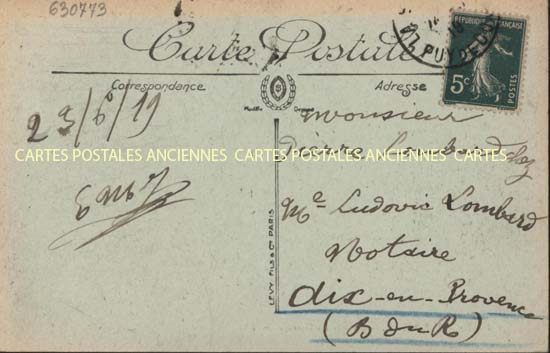 630773
Carte Postale
Correspondance
Adresse
RÉPUBLIQUE FRANÇAISE
5c
PUY-DE-
23/6/19
Monsieur
Pierre Lombard chez
CARTES POSTALES ANCIENNES CARTES POSTALES ANCIENNES CARTES
Me Ludovic Lombard
Notaire
Aix-en-Provence
(B du R)
LEVY FILS & Cie PARIS